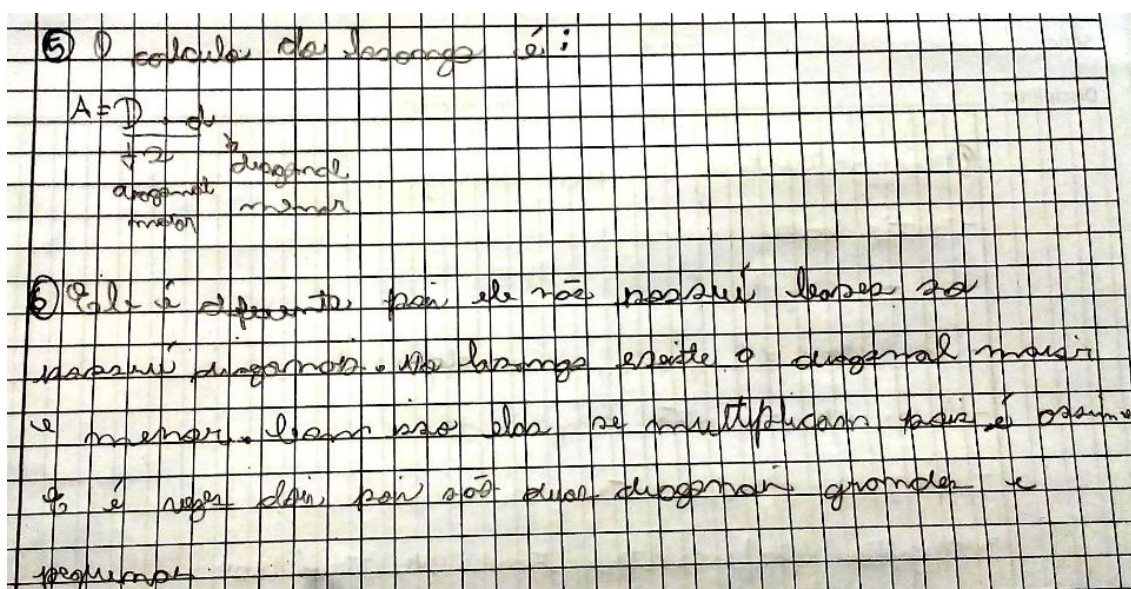 ⑤ O calculo do losongo é:
A = D . d
2 diagonal
diagonal menor
maior
⑥ Ele é diferente pois ele não possuí bases só
possuí diagonais. No losongo existe a diagonal maior
e menor. Com isso elas se multiplicam pois é assim
e é vezes dois, pois são duas diagonais grandes e
pequenas.